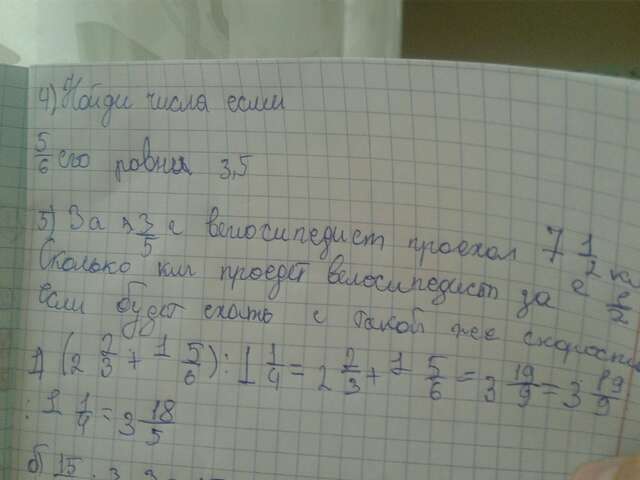 4) Найди числа если
5/6 его равны 3,5
5) За 3/5 с велосипедист проехал 7 1/2 км
Сколько км проедет велосипедист за 2 2/2
если будет ехать с такой же скоростью
1) (2 2/3 + 1 5/6) : 1 1/4 = 2 2/3 + 1 5/6 = 3 19/9 = 3 19/9
: 1 1/4 = 3 18/5
б) 15